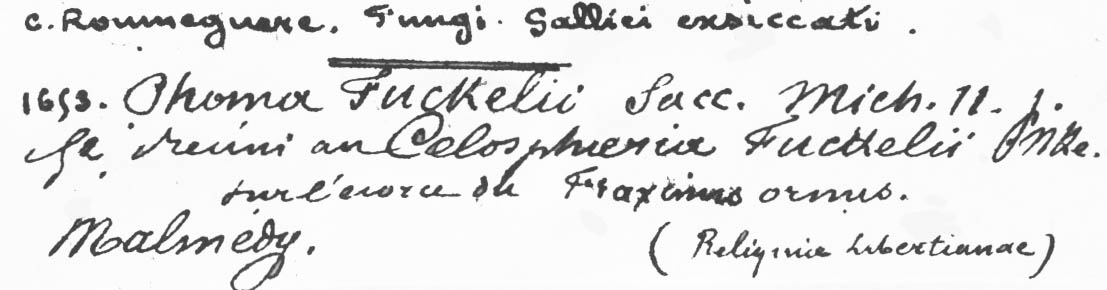 C. Roumeguere. Fungi. Gallici exsiccati.
1653. Phoma Fuckelii Sacc. Mich. 11. 1.
réuni au Celosphaeria Fuckelii
sur l'écorce du Fraxinus ornus.
Malmédy. (Reliquiae Libertianae)